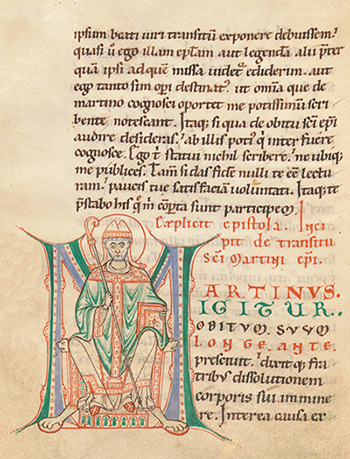 ipsum beati uiri transitū exponere debuissem.
quasi ū ego illam eplam aut legendā alii pret
quā ipsi ad quē missa uidet᷑ ediderim. aut
ego tanto sim opi destinat᷒. ut omīa que de
martino cognosci oportet me potissimū scri
bente notescant. Itaq; si qua de obitu scī epī
audire desideras. ab illis poti᷒ qui inter fuere
cognosce. Ego t̄ statui nichil scribere. ne ubiq;
me publices. Tam̄ si das fidē nulli te eē lectu
ram. paucis tue satisfaciā uoluntati. Itaq; te
p̄stabo his q̄ m̄ cōperta sunt participem.
Explicit epistola. Inci
pit de transitu
scī Martini epī.
MARTINUS.
IGITUR.
OBITUM SUUM
LONGE ANTE
presciuit. dixitq; fra
tribus dissolutionem
corporis sui immine
re. Interea causa ex